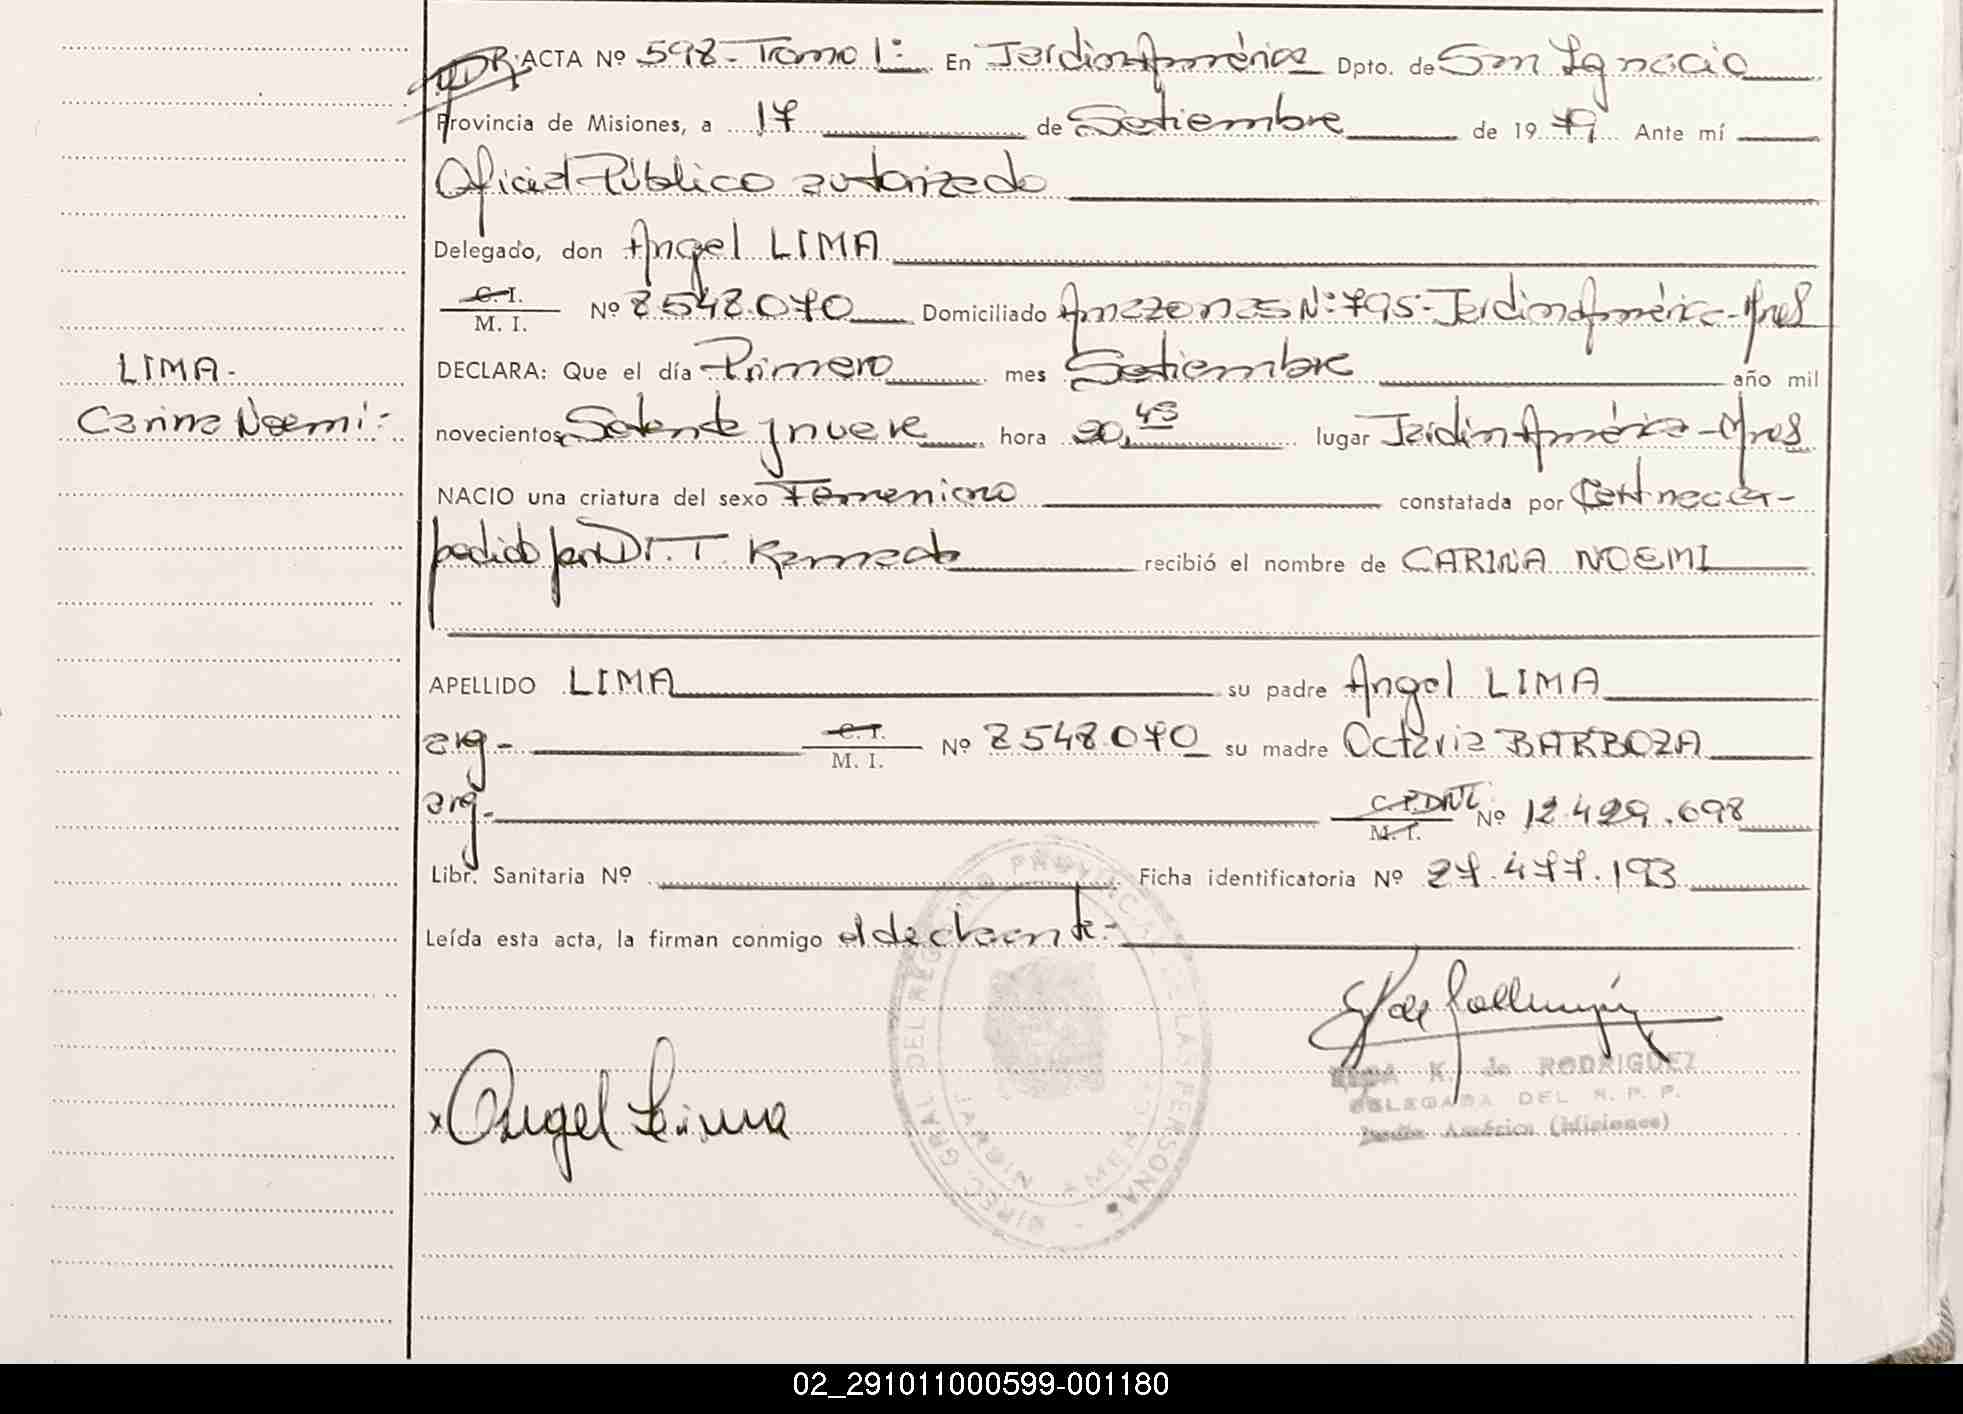 ACTA Nº 598- Tomo 1º En Jardín América Dpto. de San Ignacio
Provincia de Misiones, a 17 de Setiembre de 1979 Ante mí
Oficial Público autorizado
Delegado, don Angel LIMA
C. I.
M. I. Nº 8548.070 Domiciliado Amazonas Nº 795- Jardín América-Mnes
DECLARA: Que el día Primero mes Setiembre año mil
LIMA-
Carina Noemi-
novecientos Setenta y nueve hora 20,45 lugar Jardín América-Mnes
NACIO una criatura del sexo Femenino constatada por Cert.nac.ex-
pedido por Dr. T.
recibió el nombre de CARINA NOEMI
APELLIDO LIMA su padre Angel LIMA
arg- C. I.
M. I. Nº 8548.070 su madre Octavia BARBOZA
arg- Nº 12.429.698
M. I.
Libr. Sanitaria Nº Ficha identificatoria Nº 27.477.193
Leída esta acta, la firman conmigo el declarante-
x Angel Lima
K. de RODRIGUEZ
DELEGADA DEL R. P. P.
Jardín América (Misiones)
DIREC. GRAL. DEL REGISTRO PROVINCIAL DE LAS PERSONAS
02_291011000599-001180